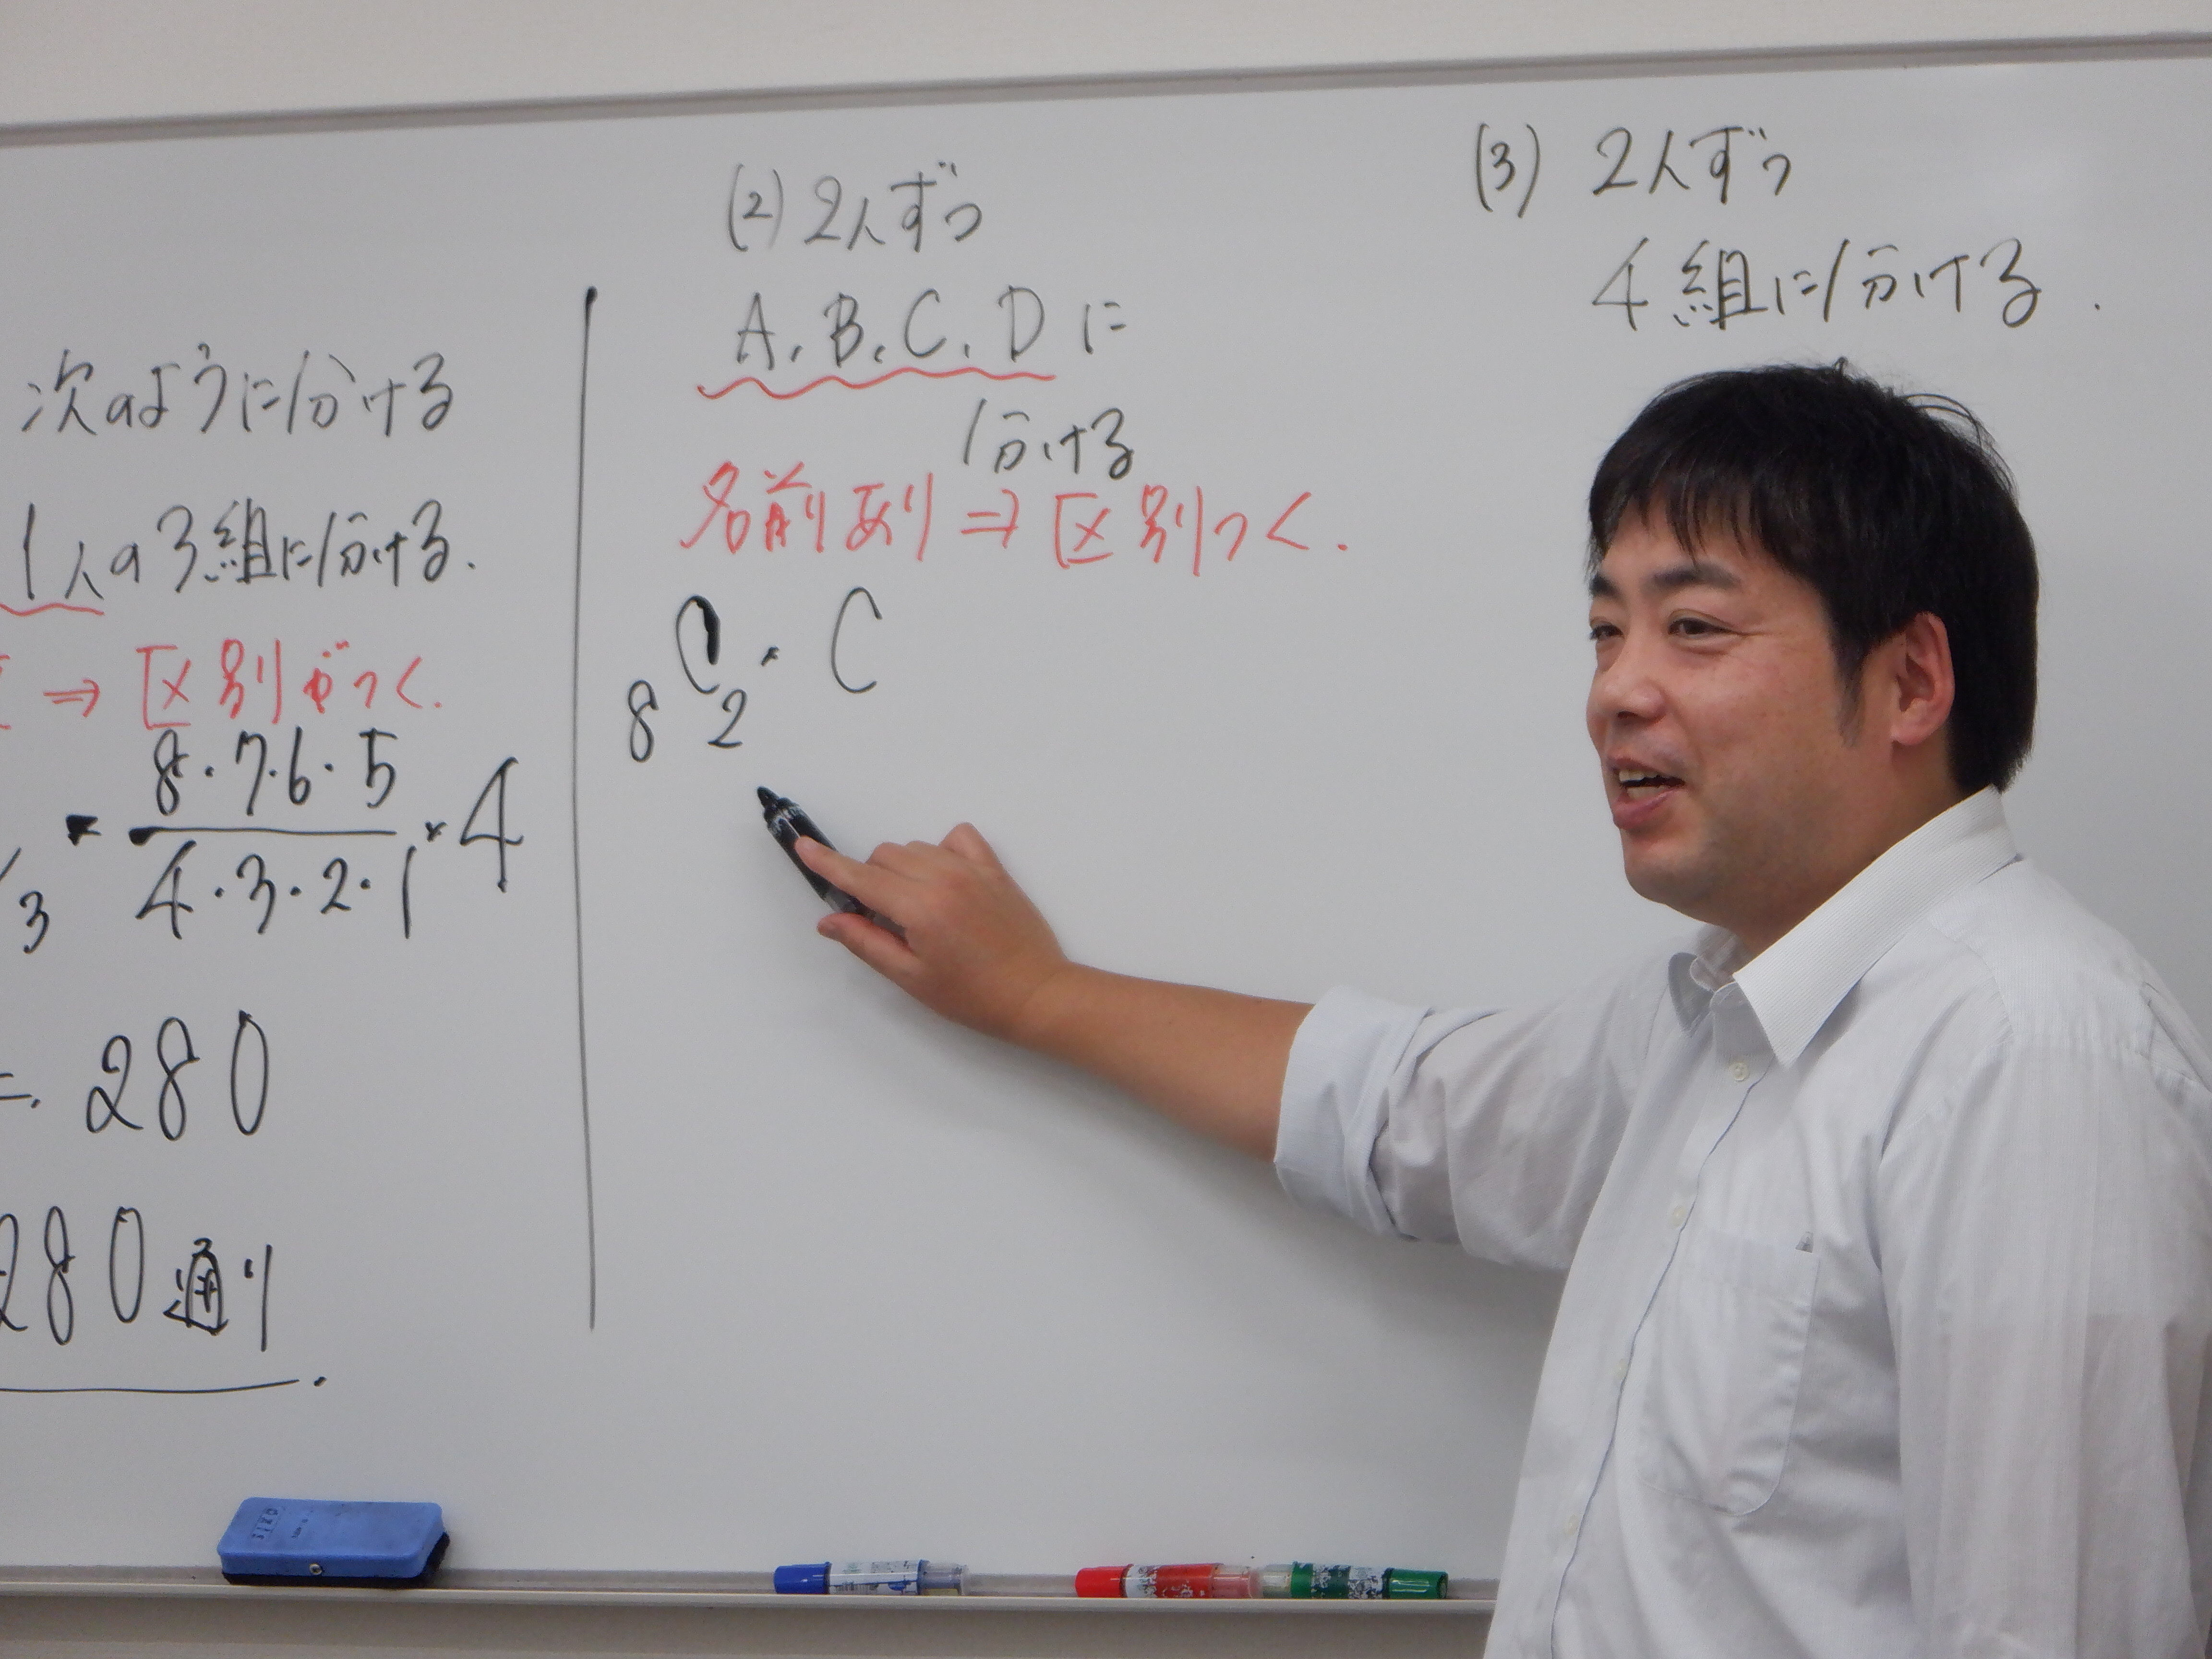 次のように分ける
1人の3組に分ける.
⇒ 区別がつく.
3 × 8・7・6・5 / 4・3・2・1 × 4
= 280
280通り.
(2) 2人ずつ
A, B, C, D に
分ける
名前あり ⇒ 区別つく.
8C2 × C
(3) 2人ずつ
4組に分ける.